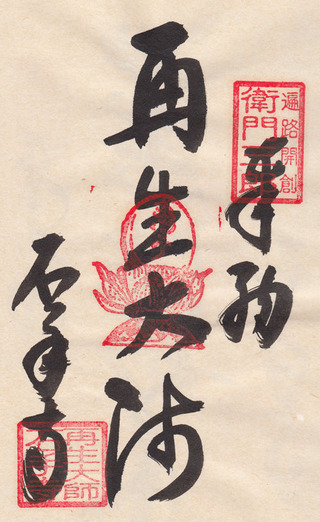 遍路開創
衛門三郎
奉納
再生大師
石手寺
再生大師